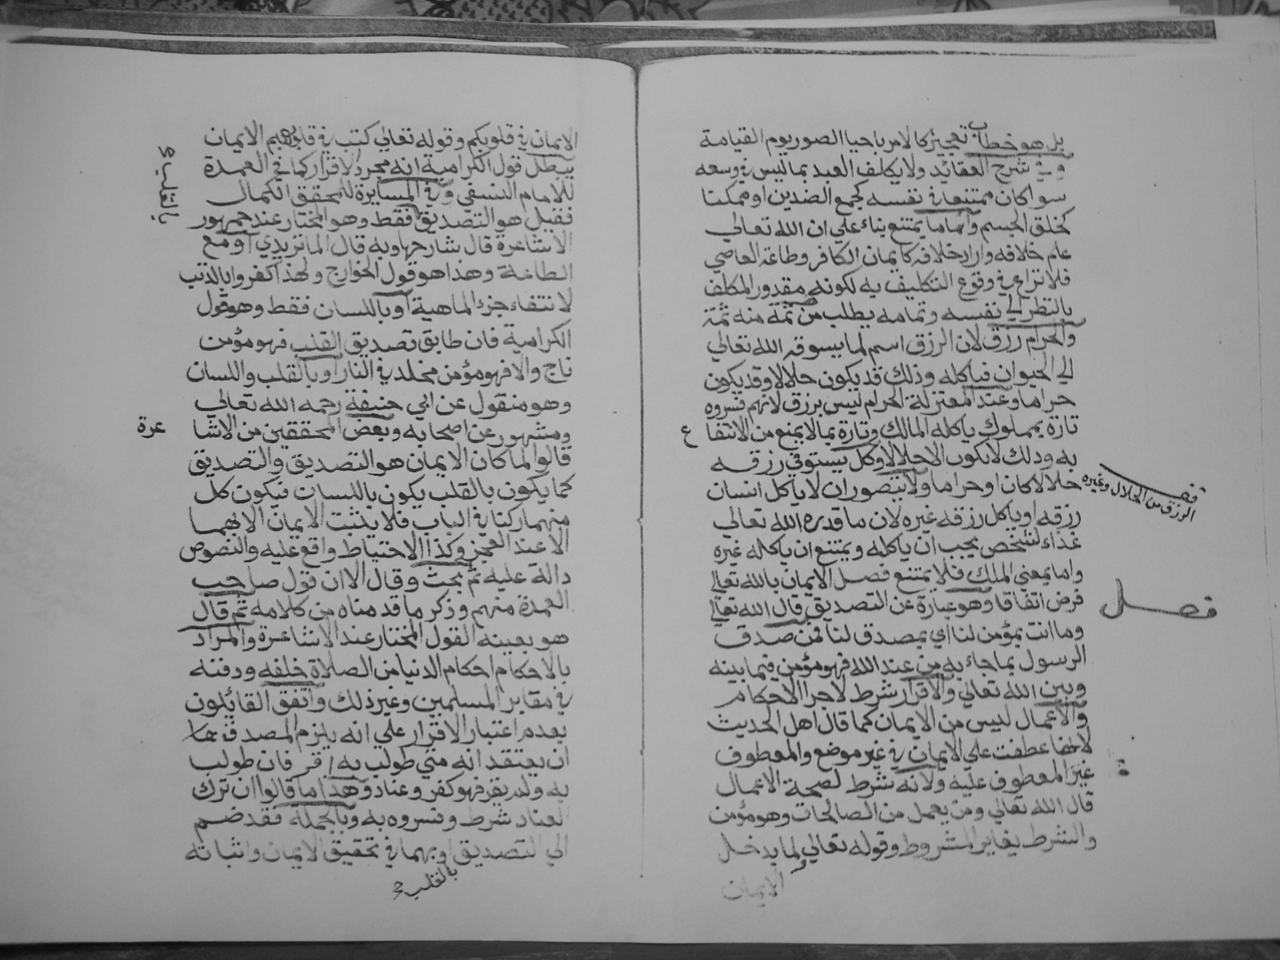 بل هو خطاب تعجيز كالامر باحيا الصور يوم القيامة
وفي شرح العقايد ولا يكلف العبد بما ليس في وسعه
سوا كان ممتنعا في نفسه كجمع الضدين او ممكنا
كخلق الجسم واما ما يمتنع بناء علي ان الله تعالي
علم خلافه واراد خلافه كايمان الكافر وطاعة العاصي
فلا نزاع في وقوع التكليف به لكونه مقدور المكلف
بالنظر الي نفسه وتمامه يطلب من ثمة منه ثمة
والحرام رزق لان الرزق اسم لما يسوقه الله تعالي
الي الحيوان فياكله وذلك قد يكون حلالا وقد يكون
حراما وعند المعتزلة الحرام ليس برزق لانهم فسروه
تارة بمملوك ياكله المالك وتارة بما لا يمنع من الانتفا ع
به وذلك لا يكون الا حلالا وكل يستوفي رزقه
فصل
الرزق من الحلال وغيره
حلالا كان او حراما ولا يتصور ان لا ياكل انسان
رزقه او ياكل رزقه غيره لان ما قدره الله تعالي
غذاء لشخص يجب ان ياكله ويمتنع ان ياكله غيره
واما بمعني الملك فلا يمتنع فصل الايمان بالله تعالي
فصل
فرض اتفاقا وهو عبارة عن التصديق قال الله تعالي
وما انت بمؤمن لنا اي بمصدق لنا فمن صدق
الرسول بما جاء به من عند الله فهو مؤمن فيما بينه
وبين الله تعالي والاقرار شرط لاجرا الاحكام
والاعمال ليس من الايمان كما قال اهل الحديث
لانها عطفت علي الايمان في غير موضع والمعطوف
غير المعطوف عليه ولانه شرط لصحة الاعمال
قال الله تعالي ومن يعمل من الصالحات وهو مؤمن
والشرط يغاير المشروط وقوله تعالي ولما يدخل
الايمان
الايمان في قلوبكم وقوله تعالي كتب في قلوبهم الايمان
يبطل قول الكرامية انه مجرد الاقرار كما في العمدة
للامام النسفي وفي المسايرة للمحقق الكمال
بالقلب
فقيل هو التصديق فقط وهو المختار عند جمهور
الاشاعرة قال شارحها وبه قال الماتريدي او مع
الطاعة وهذا هو قول الخوارج ولهذا كفروا بالذنب
لانتفاء جزء الماهية او باللسان فقط وهو قول
الكرامية فان طابق تصديق القلب فهو مؤمن
ناج والا فهو مؤمن مخلد في النار او بالقلب واللسان
وهو منقول عن ابي حنيفة رحمه الله تعالي
ومشهور عن اصحابه وبعض المحققين من الاشا عرة
قالوا لما كان الايمان هو التصديق والتصديق
كما يكون بالقلب يكون باللسان فيكون كل
منهما ركنا في الباب فلا يثبت الايمان الا بهما
الا عند العجز وكذا الاحتياط واقع عليه والنصوص
دالة عليه ثم بحث وقال الا ان قول صاحب
العمدة منهم وذكر ما قدمناه من كلامه ثم قال
هو بعينه القول المختار عند الاشاعرة والمراد
بالاحكام احكام الدنيا من الصلاة خلفه ودفنه
في مقابر المسلمين وغير ذلك واتفق القائلون
بعدم اعتبار الاقرار علي انه يلزم المصدق
ان يعتقد انه متي طولب به اقر فان طولب
به ولم يقر فهو كفر وعناد وهذا ما قالوا ان ترك
العناد شرط وفسروه به وبالجملة فقد ضم
الي التصديق او بهما في تحقيق الايمان واثباته
بالقلب